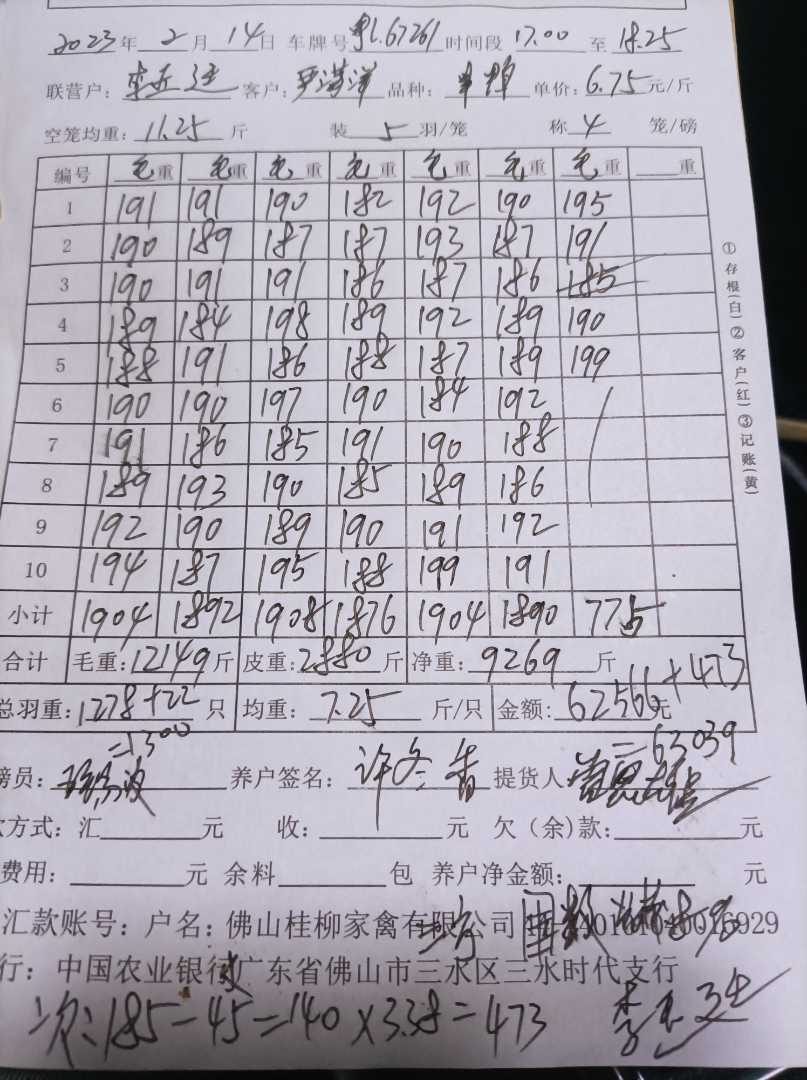 2023年 2 月 14 日 车牌号 粤L67261 时间段 17.00 至 18.25
联营户: 客户: 严满洋 品种: 单价: 6.75 元/斤
空笼均重: 11.25 斤 装 5 羽/笼 称 4 笼/磅
编号 毛重 毛重 毛重 毛重 毛重 毛重 毛重 重
1 191 191 190 182 192 190 195
2 190 189 187 187 193 187 191
3 190 191 191 186 187 186 185
4 189 184 198 189 192 189 190
5 188 191 186 188 187 189 199
6 190 190 197 190 184 192
7 191 186 185 191 190 188
8 189 193 190 185 189 186
9 192 190 189 190 191 192
10 194 187 195 188 199 191
小计 1904 1892 1908 1876 1904 1890 775
合计 毛重: 12149 斤 皮重: 2880 斤 净重: 9269 斤
总羽重: 1278+22 只 均重: 7.25 斤/只 金额: 62566+473 元
=1300 =63039
磅员: 养户签名: 许冬青 提货人
款方式: 汇 元 收: 元 欠(余)款: 元
费用: 元 余料 包 养户净金额: 元
汇款账号: 户名: 佛山桂柳家禽有限公司
行: 中国农业银行广东省佛山市三水区三水时代支行
二次: 185-45=140×3.38=473
①存根(白)②客户(红)③记账(黄)